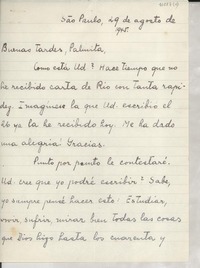 São Paulo, 29 de agosto de
1945.
Buenas tardes, Palmita,
Como esta Ud? Hace tiempo que no
he recibido carta de Rio con tanta rapi-
dez. Imaginese la que Ud. escribio el
26 ya la he recibido hoy. Me ha dado
una alegria. Gracias.
Punto por punto le contestaré.
Ud. cree que yo podré escribir? Sabe,
yo siempre pensé hacer esto: Estudiar,
vivir, sufrir, mirar bien todas las cosas
que Dios hizo hasta los cuarenta, y